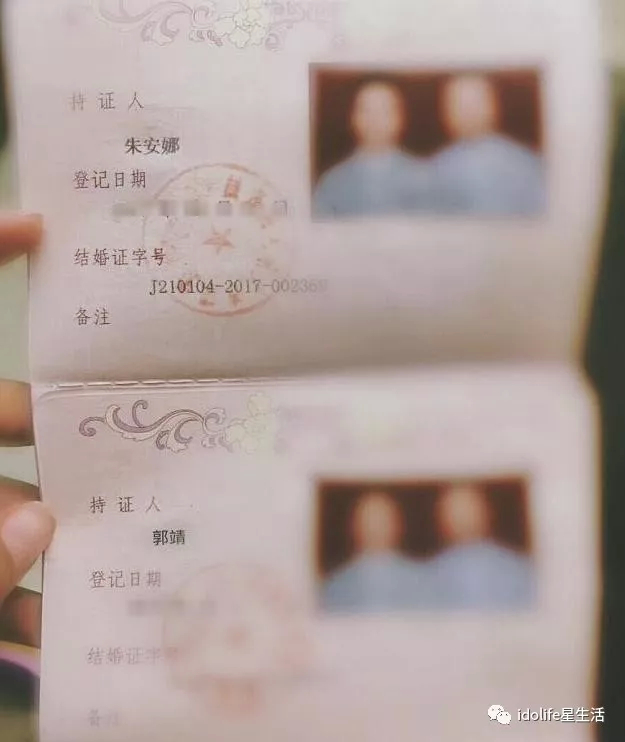 持证人
朱安娜
登记日期
结婚证字号
J210104-2017-00236
备注
持证人
郭靖
登记日期
结婚证字号
备注
idolife星生活